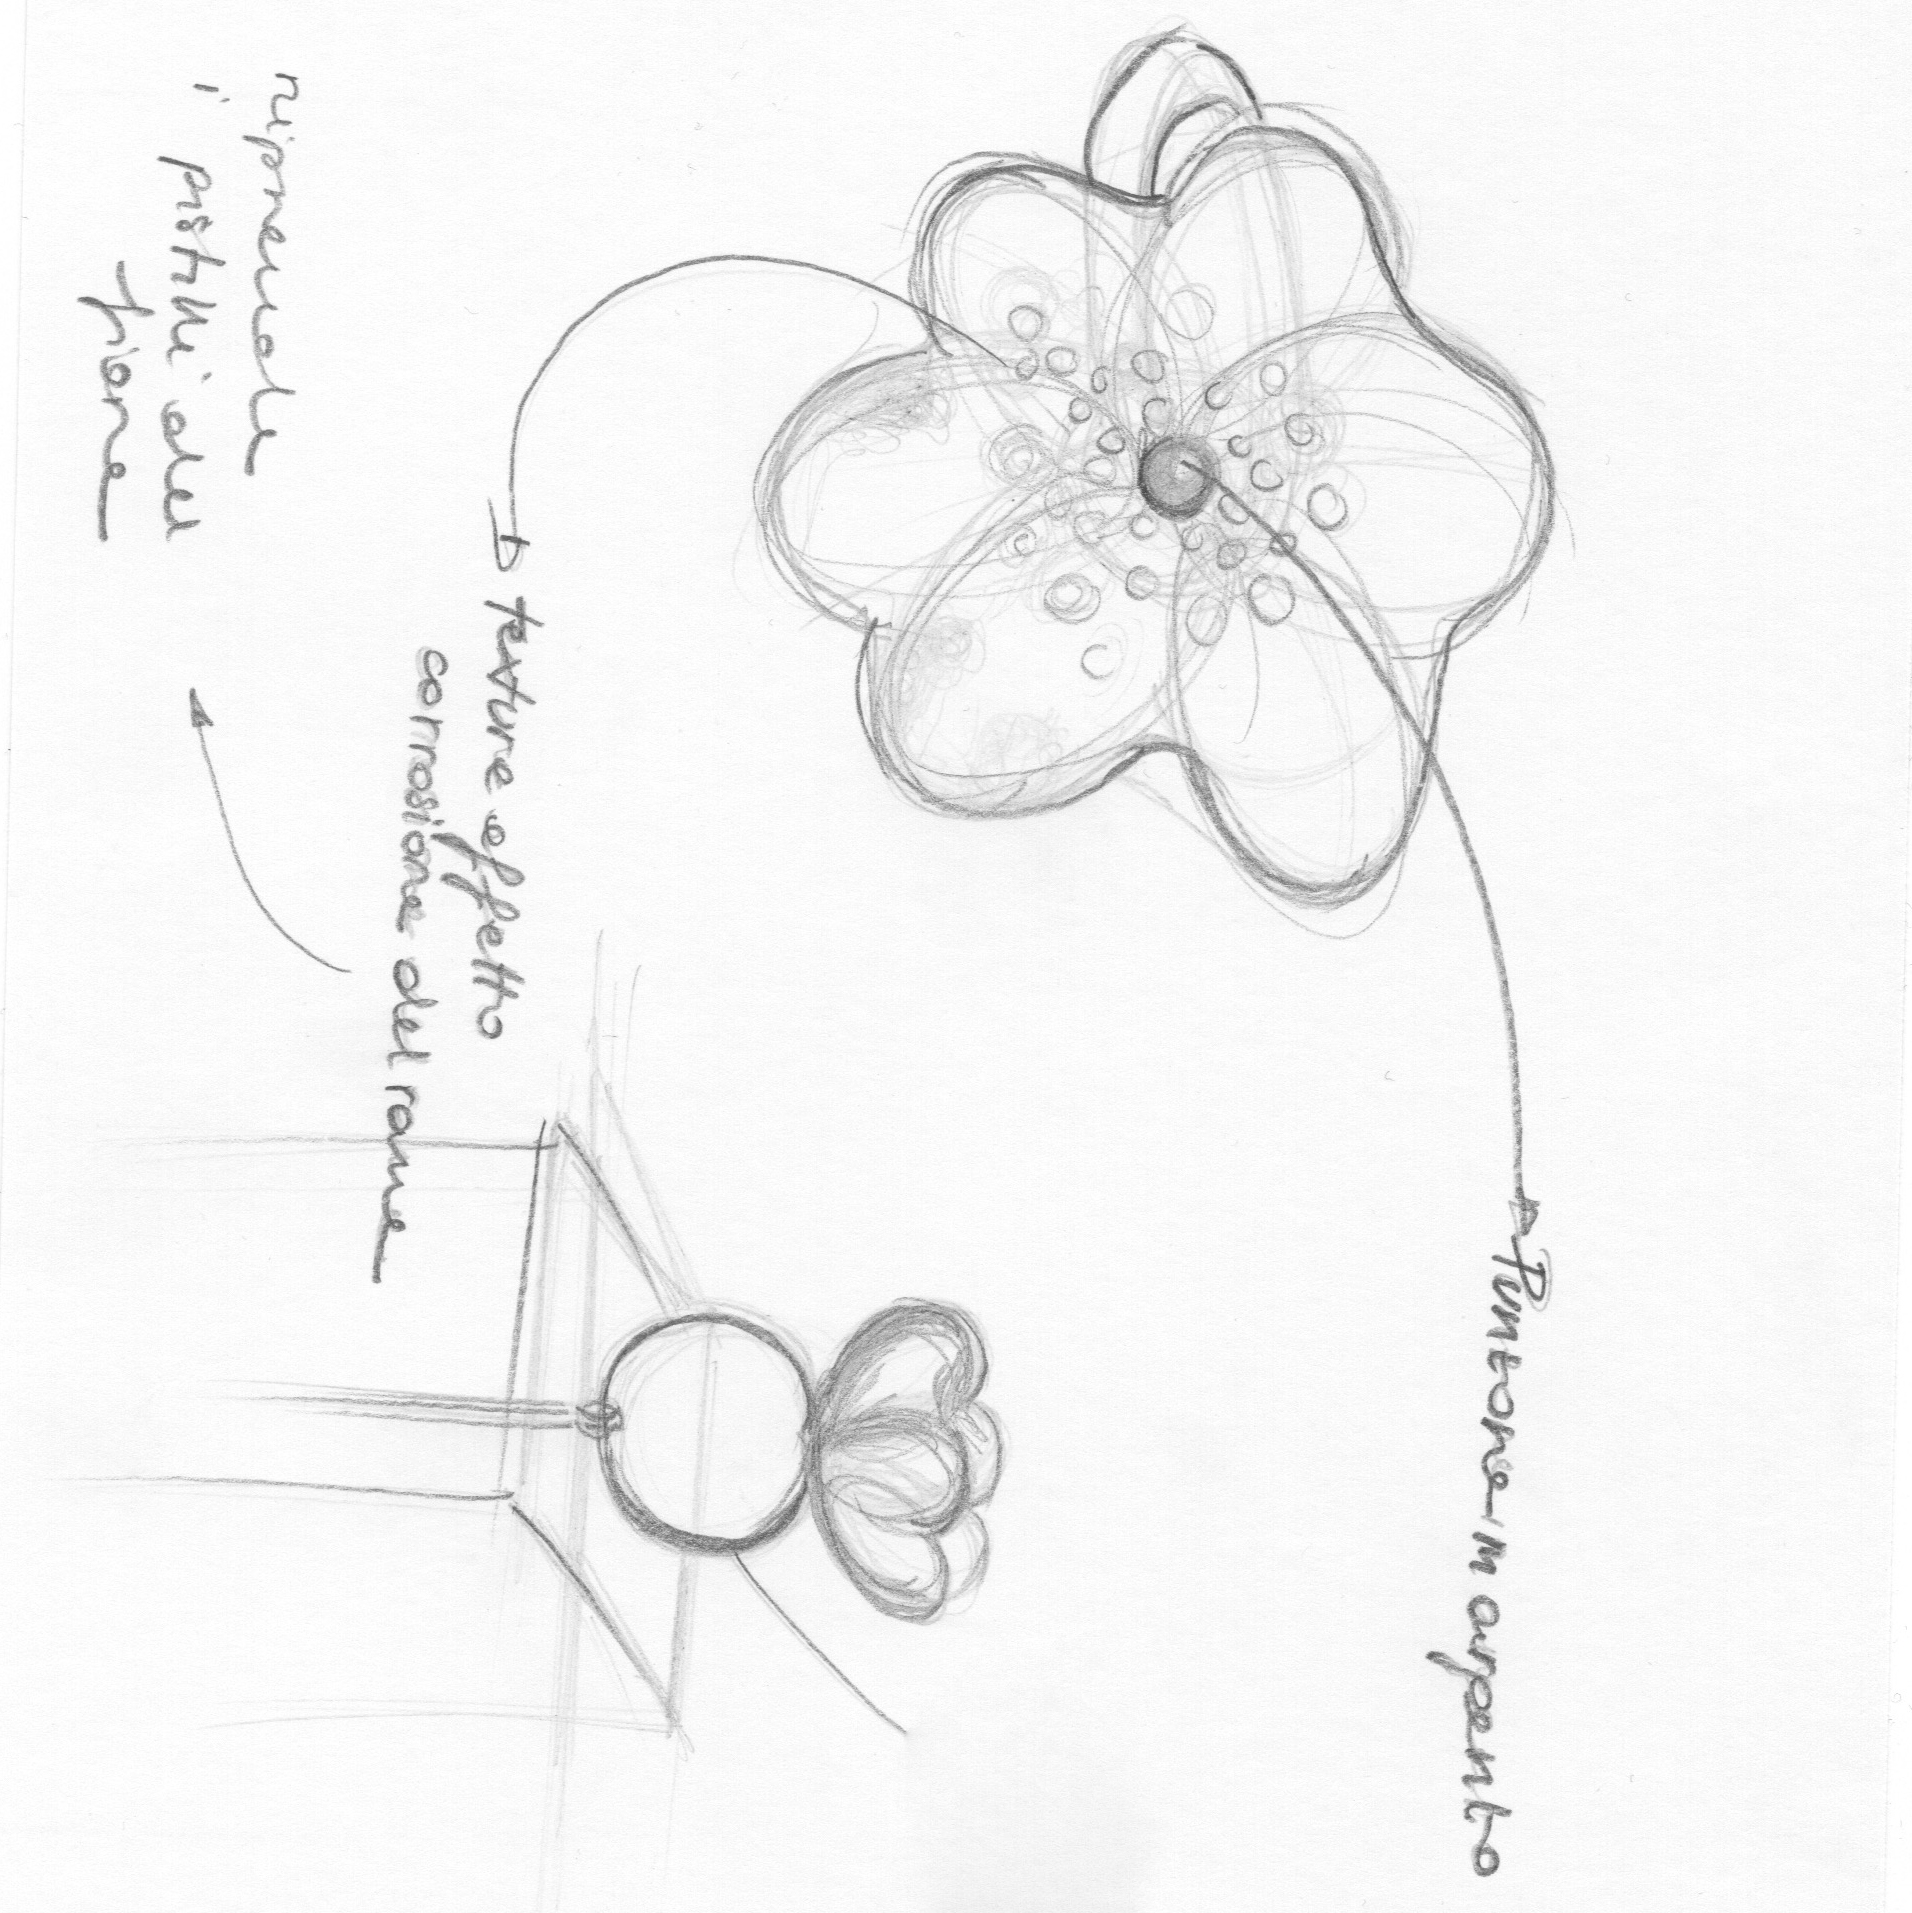 Puntone in argento
texture effetto
corrosione del rame
riprende
i pistilli del
fiore